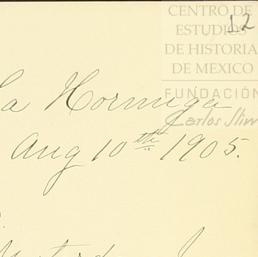 CENTRO DE
ESTUDIOS
DE HISTORIA
DE MEXICO
FUNDACIÓN
Carlos Slim
12
La Hormiga
Aug 10th 1905.